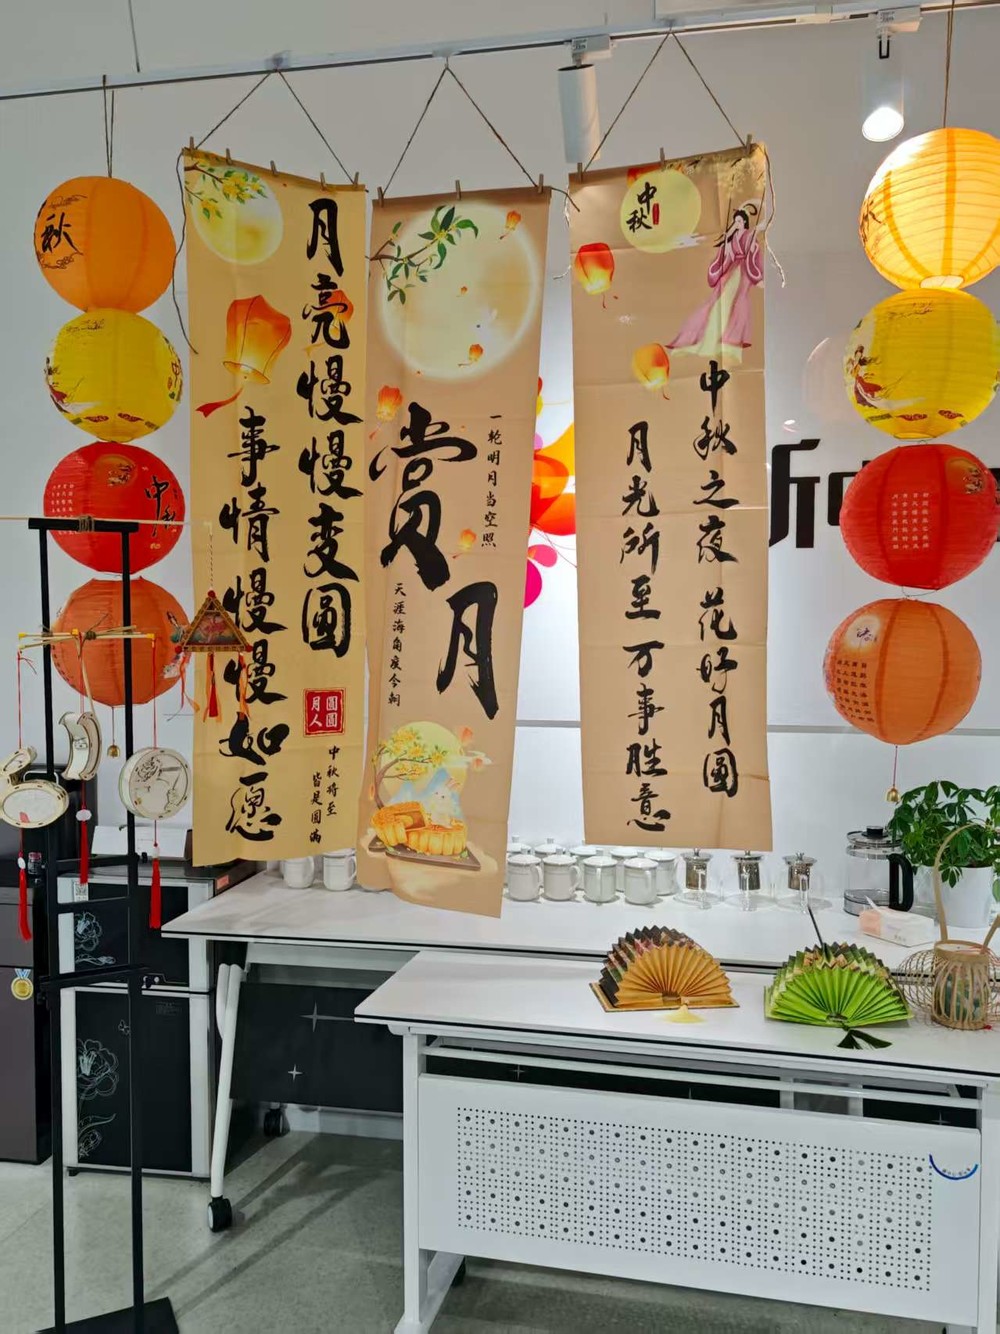 秋
中秋
月亮慢慢变圓
事情慢慢如愿
月圓
人圓
中秋将至
皆是圆满
一轮明月当空照
赏月
天涯海角度今朝
中秋
中秋之夜 花好月圓
月光所至 万事胜意